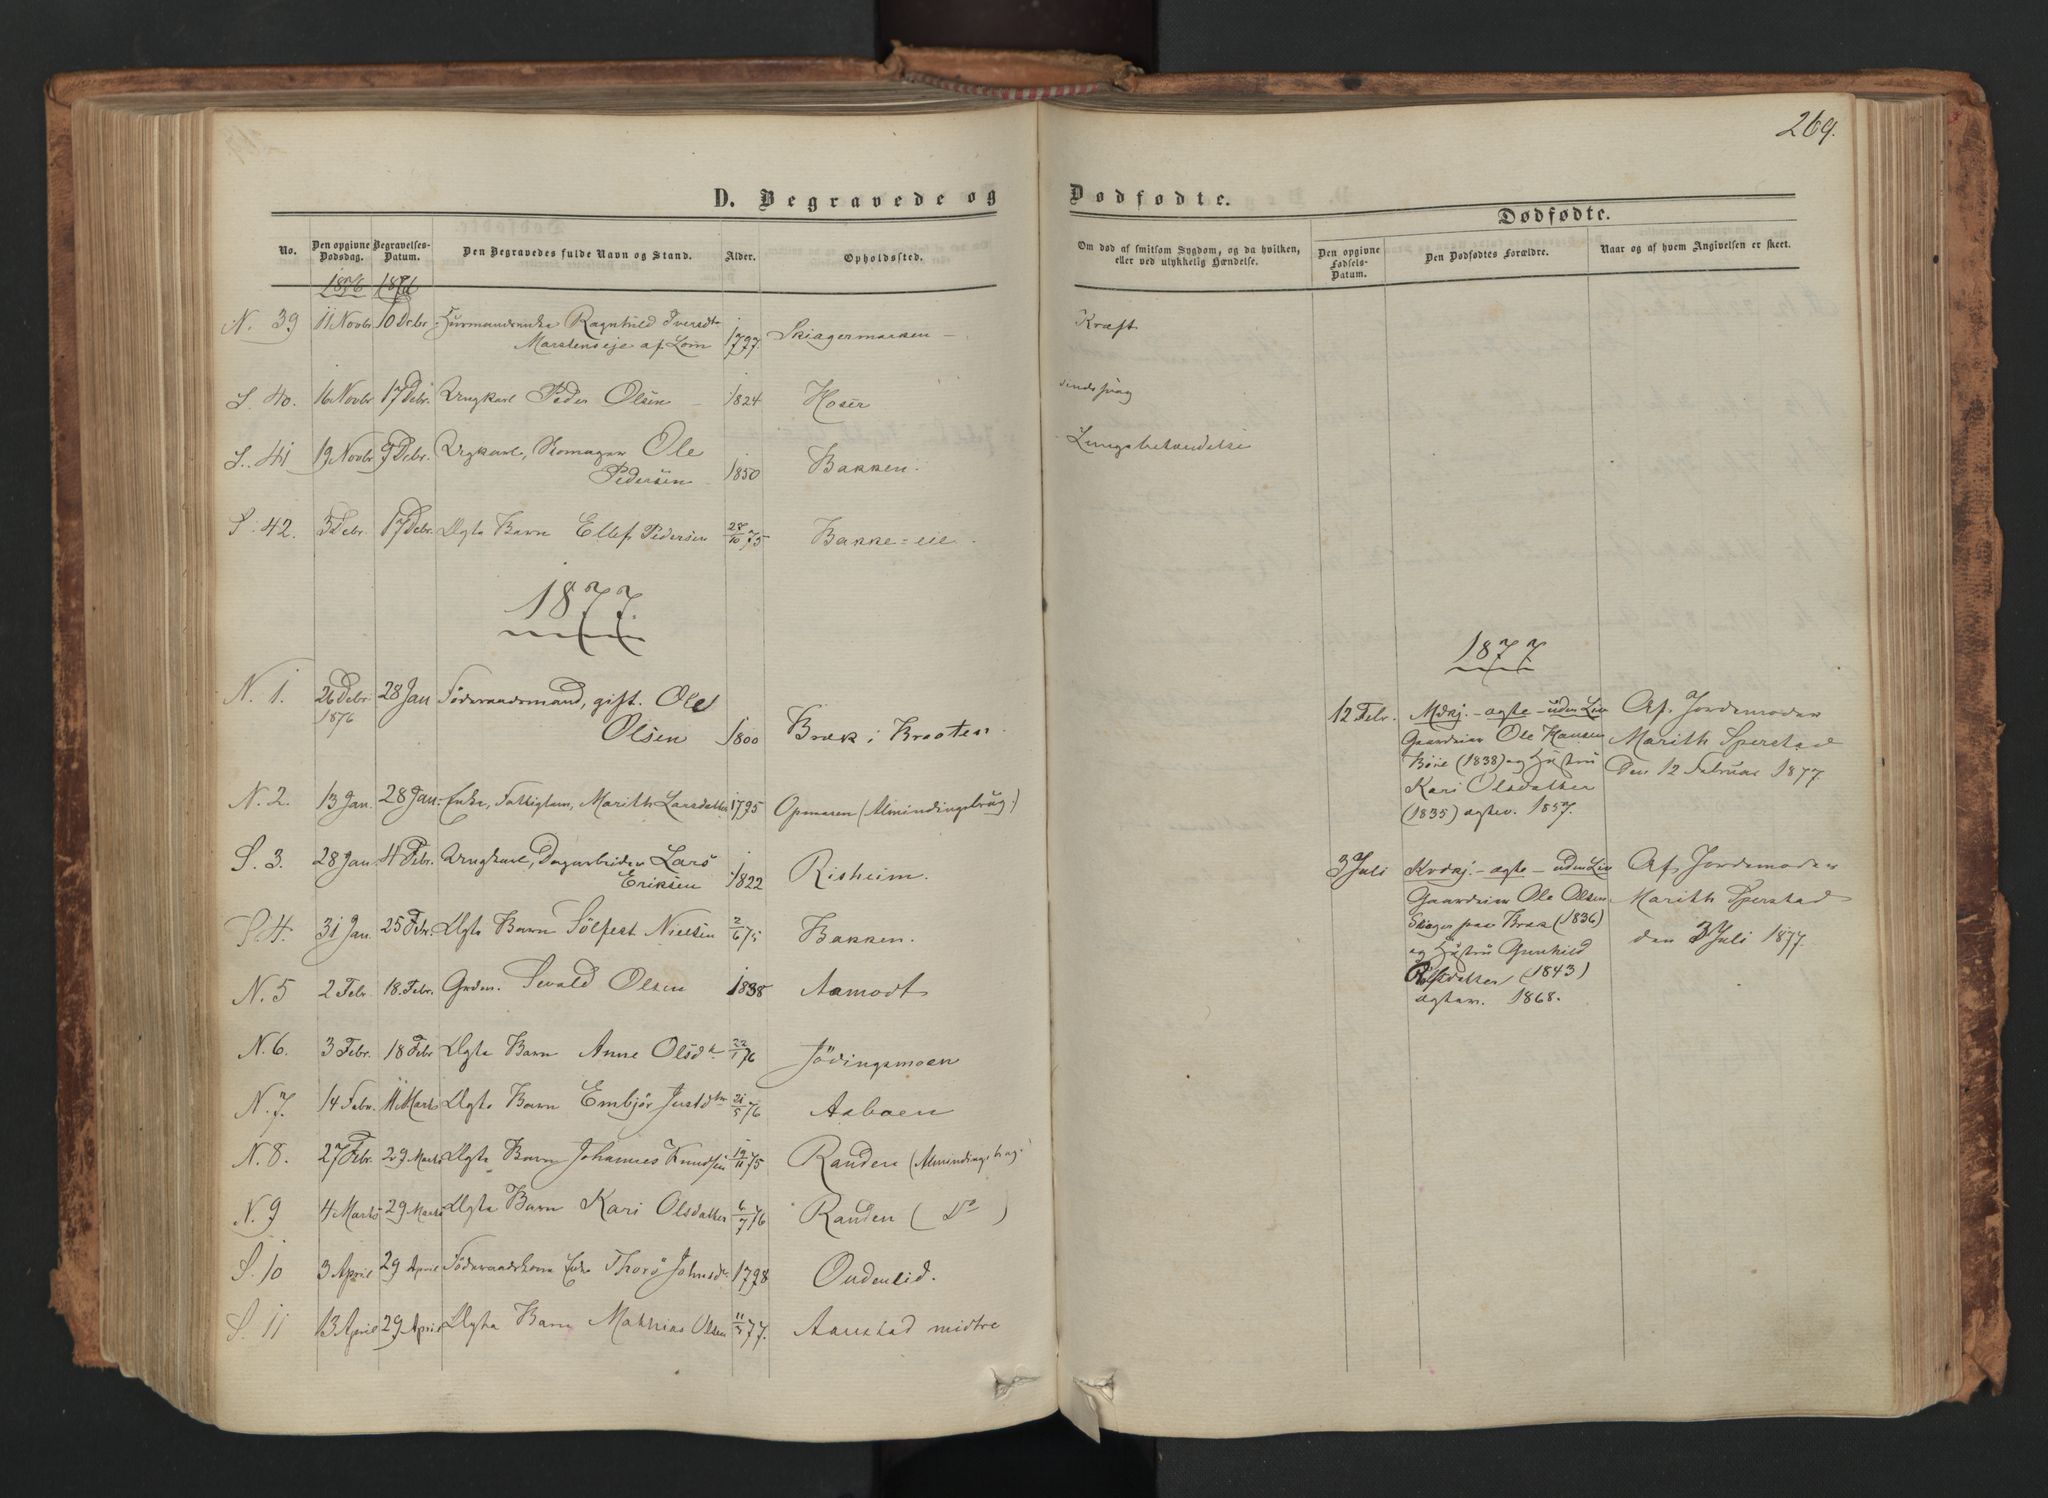 269.
D. Begravede og Dødfødte.
Dødfødte.
No. Den opgivne Dødsdag. Begravelses-Datum. Den Begravedes fulde Navn og Stand. Alder. Opholdssted.
Om død af smitsom Sygdom, og da hvilken, eller ved ulykkelig Hændelse. Den opgivne Fødsels-Datum. Den Dødfødtes Forældre. Naar og af hvem Angivelsen er skeet.
1876 1876
N. 39 11 Novbr 10 Debr. Huusmandsenke Ragnhild Iversdtr
Marstenseje af Lom 1797. Skiagermarken - Kræft
S. 40. 16 Novbr 17 Debr. Ungkarl Peder Olsen - 1824 Hoser sindssvag
S. 41 19 Novbr 9 Debr. Ungkarl, Skomager Ole
Pedersen 1850 Bakken. Lungebetændelse
S. 42. 3 Debr. 17 Debr. Ægte Barn Ellef Pedersen 28/10 75 Bakke=eie.
1877.
N. 1. 26 Debr 28 Jan Föderaadsmand, gift. Ole
1876 Olsen 1800 Bræk i Braaten.
N. 2. 13 Jan. 28 Jan. Enke, Fattiglem, Marith Larsdatter 1795 Opmoen (Almindingsbrug.)
S. 3. 28 Jan. 4 Febr. Ungkarl, Dagarbeider Lars
Eriksen 1822 Risheim.
S. 4. 31 Jan. 25 Febr. Ægte Barn Sölfest Nielsen 2/6 75 Bakken.
N. 5 2 Febr. 18. Febr. Grdm. Sevald Olsen 1838 Aamodt
N. 6. 3 Febr. 18 Febr Ægte Barn Anne Olsdtr 22/1 76 Jödingsmoen
N. 7. 14 Febr. 11 Marts Ægte Barn Embjör Justdtr 21/5 76 Aaboen
N. 8. 27 Febr. 29 Marts Ægte Barn Johannes Knudsen 19/11 75 Randen (Almindingsbrug.)
N. 9 4 Marts 29 Marts Ægte Barn Kari Olsdatter 6/7 76 Randen ( Do )
S. 10 3 April 29 April Föderaadskone Enke Thorö Johnsdtr 1798 Oudenlid.
S. 11 13 April 29 April Ægte Barn Mathias Olsen 11/3 77. Aanstad midtre
1877
12 Febr. Mdkj. - ægte - uden Liv Af Jordemoder
Gaardeier Ole Hansen Marith Sperstad
Böie (1838) og Hustru Den 12 Februar 1877.
Kari Olsdatter
(1835) ægtev. 1857.
3 Juli Kvdkj. - ægte - uden Liv Af Jordemoder
Gaardeier Ole Olsen Marith Sperstad
Skiager paa Bræk (1836) den 3 Juli 1877.
og Hustru Gunhild
Rolfsdatter (1843)
ægtev. 1868.